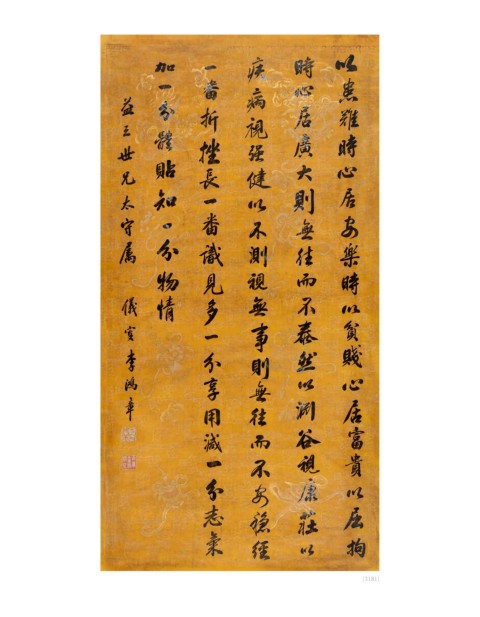 以患難時心居安樂時以貧賤心居富貴以屈拘
時心居廣大則無往而不泰然以淵谷視康莊以
疾病視强健以不測視無事則無往而不安穩經
一番折挫長一番識見多一分享用減一分志氣
加一分體貼知丶分物情
益三世兄太守属 儀叟李鴻章